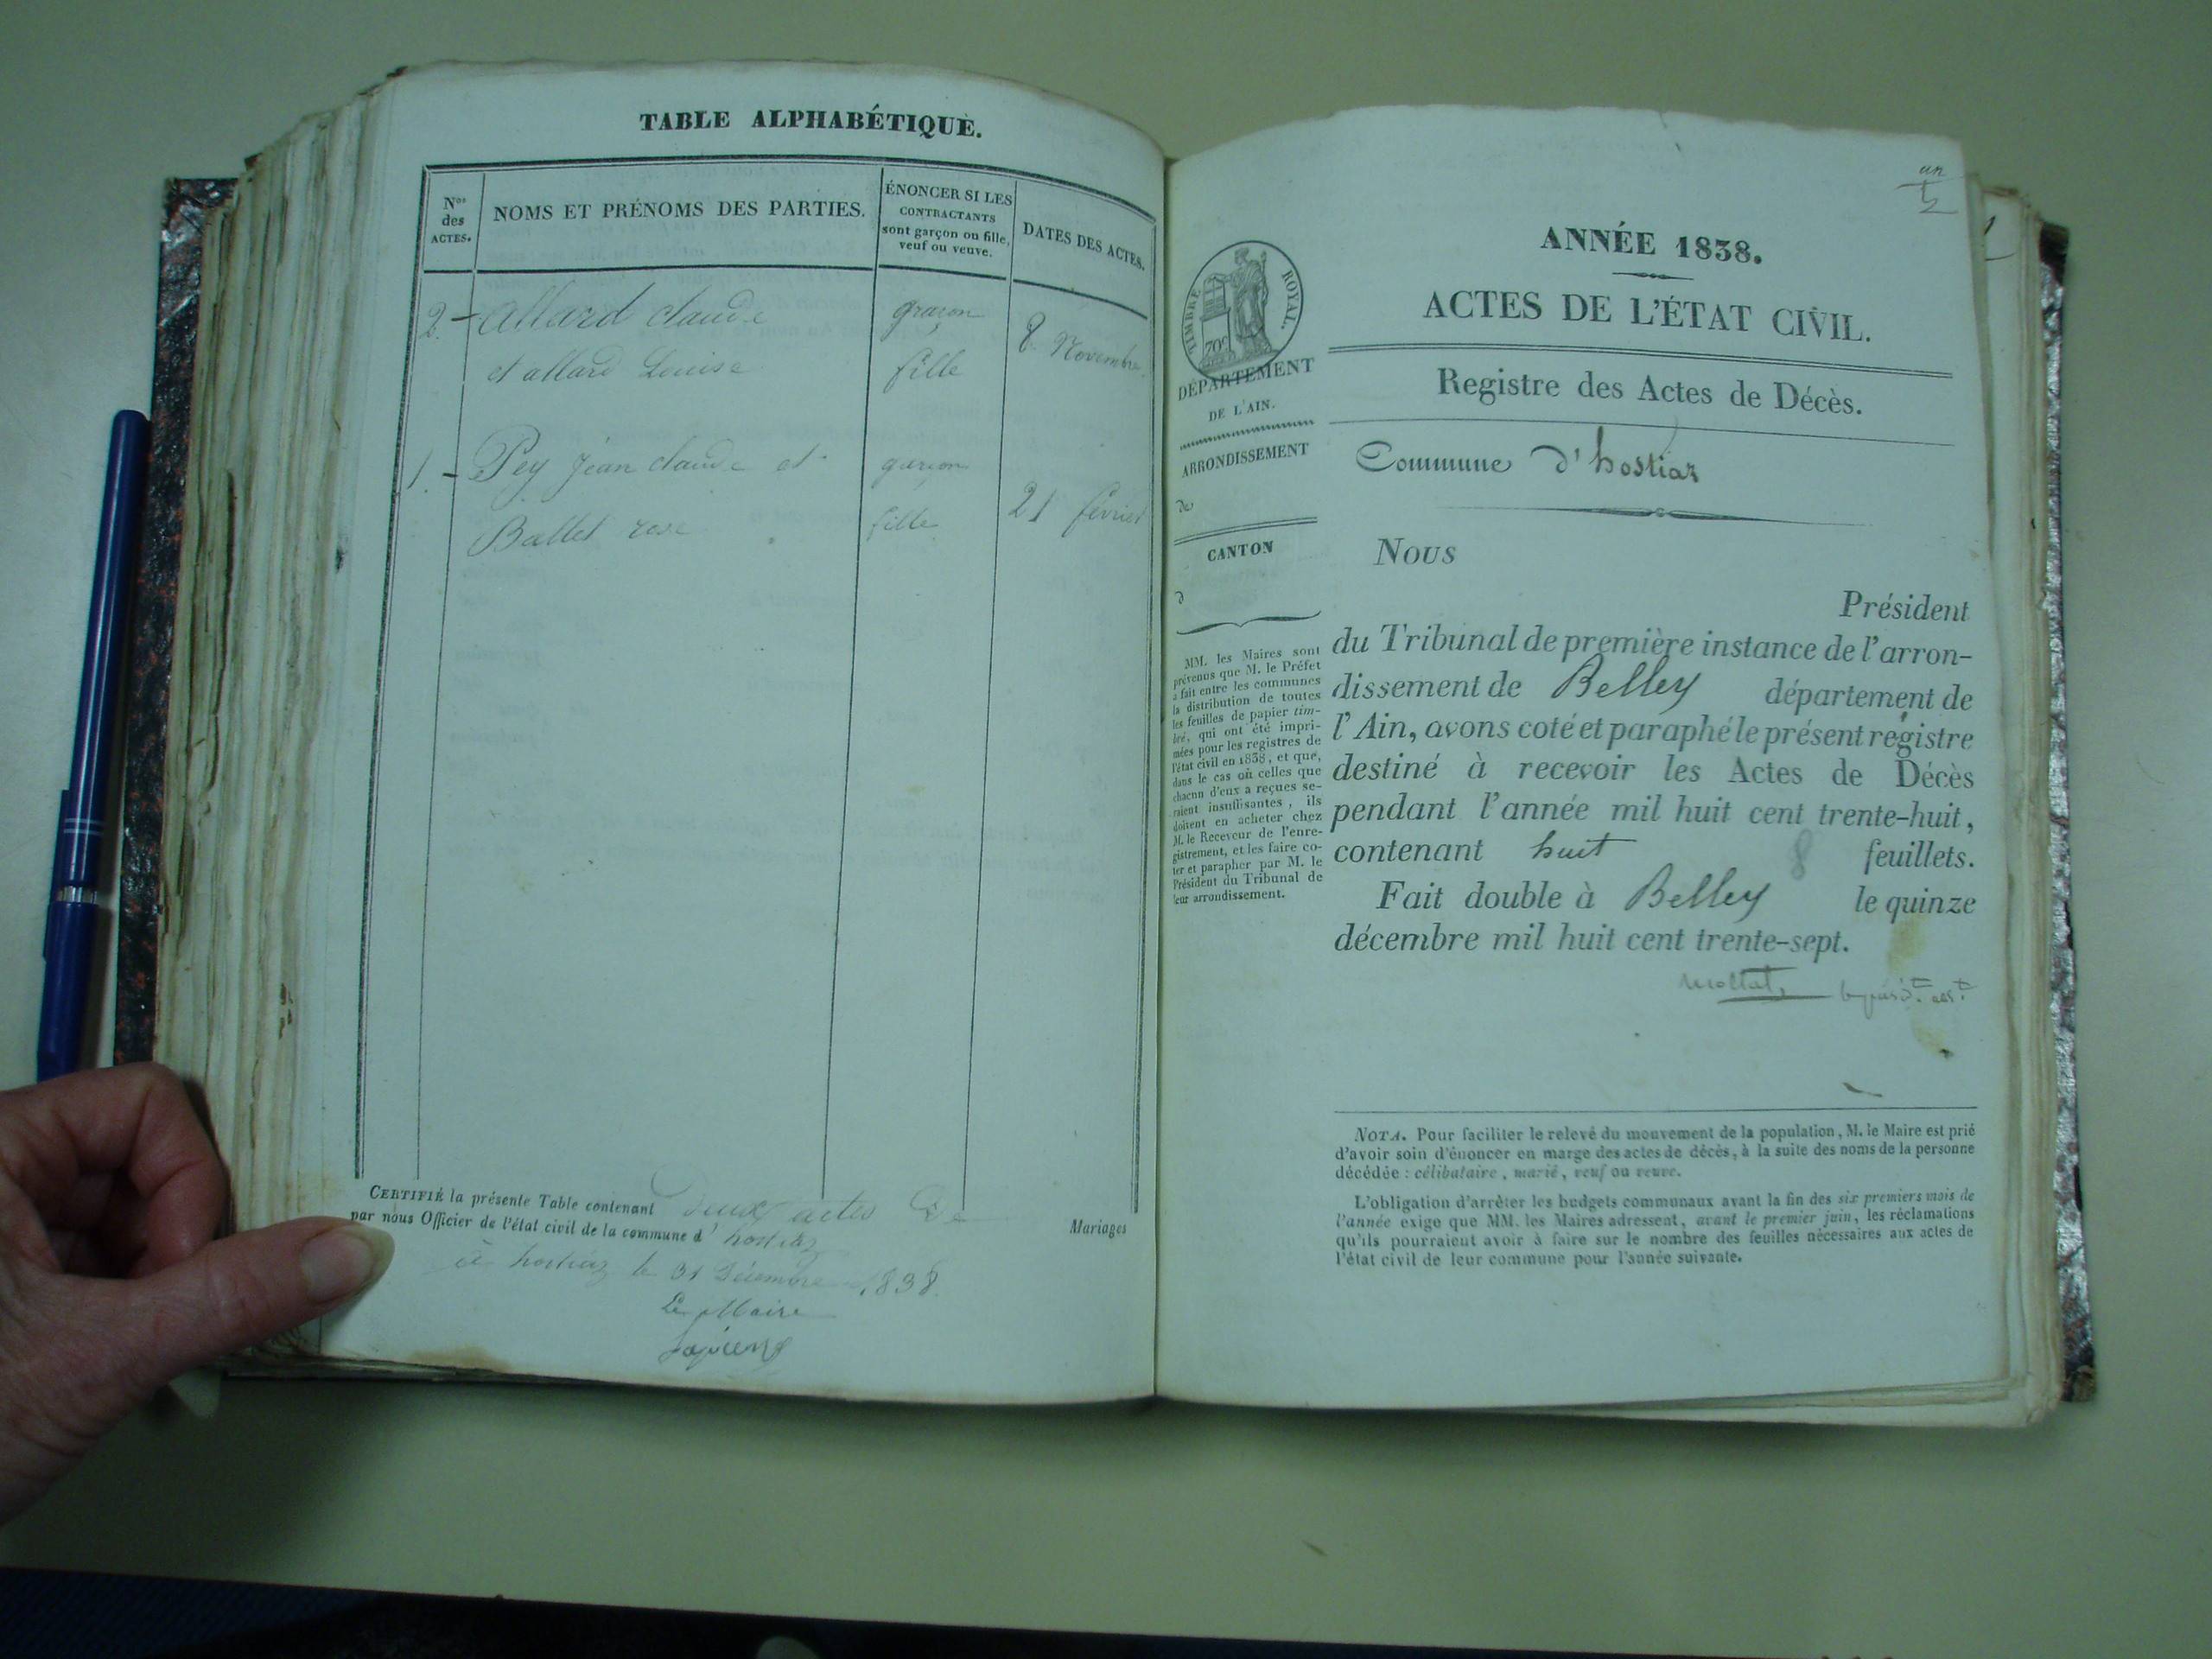 TABLE ALPHABÉTIQUE.
Nos
des
ACTES.
NOMS ET PRÉNOMS DES PARTIES.
ÉNONCER SI LES
CONTRACTANTS
sont garçon ou fille,
veuf ou veuve.
DATES DES ACTES.
2. - allard claude
garçon
8 Novembre
et allard Louise
fille
1. - Pey jean claude et
garçon
21 février
Ballet rose
fille
CERTIFIÉ la présente Table contenant deux actes de Mariages
par nous Officier de l'état civil de la commune d' hostiaz
à hostiaz le 31 Décembre 1838.
Le Maire
un
1838.
TIMBRE ROYAL.
70c
ANNÉE 1838.
ACTES DE L'ÉTAT CIVIL.
Registre des Actes de Décès.
Commune d'hostiaz
DÉPARTEMENT
DE L'AIN.
ARRONDISSEMENT
de
CANTON
d
MM. les Maires sont
prévenus que M. le Préfet
a fait entre les communes
la distribution de toutes
les feuilles de papier tim-
bré, qui ont été impri-
mées pour les registres de
l'état civil en 1838, et que,
dans le cas où celles que
chacun d'eux a reçues se-
raient insuffisantes, ils
doivent en acheter chez
M. le Receveur de l'enre-
gistrement, et les faire co-
ter et parapher par M. le
Président du Tribunal de
leur arrondissement.
Nous
Président
du Tribunal de première instance de l'arron-
dissement de Belley département de
l'Ain, avons coté et paraphé le présent registre
destiné à recevoir les Actes de Décès
pendant l'année mil huit cent trente-huit,
contenant huit 8 feuillets.
Fait double à Belley le quinze
décembre mil huit cent trente-sept.
NOTA. Pour faciliter le relevé du mouvement de la population, M. le Maire est prié
d'avoir soin d'énoncer en marge des actes de décès, à la suite des noms de la personne
décédée : célibataire, marié, veuf ou veuve.
L'obligation d'arrêter les budgets communaux avant la fin des six premiers mois de
l'année exige que MM. les Maires adressent, avant le premier juin, les réclamations
qu'ils pourraient avoir à faire sur le nombre des feuilles nécessaires aux actes de
l'état civil de leur commune pour l'année suivante.